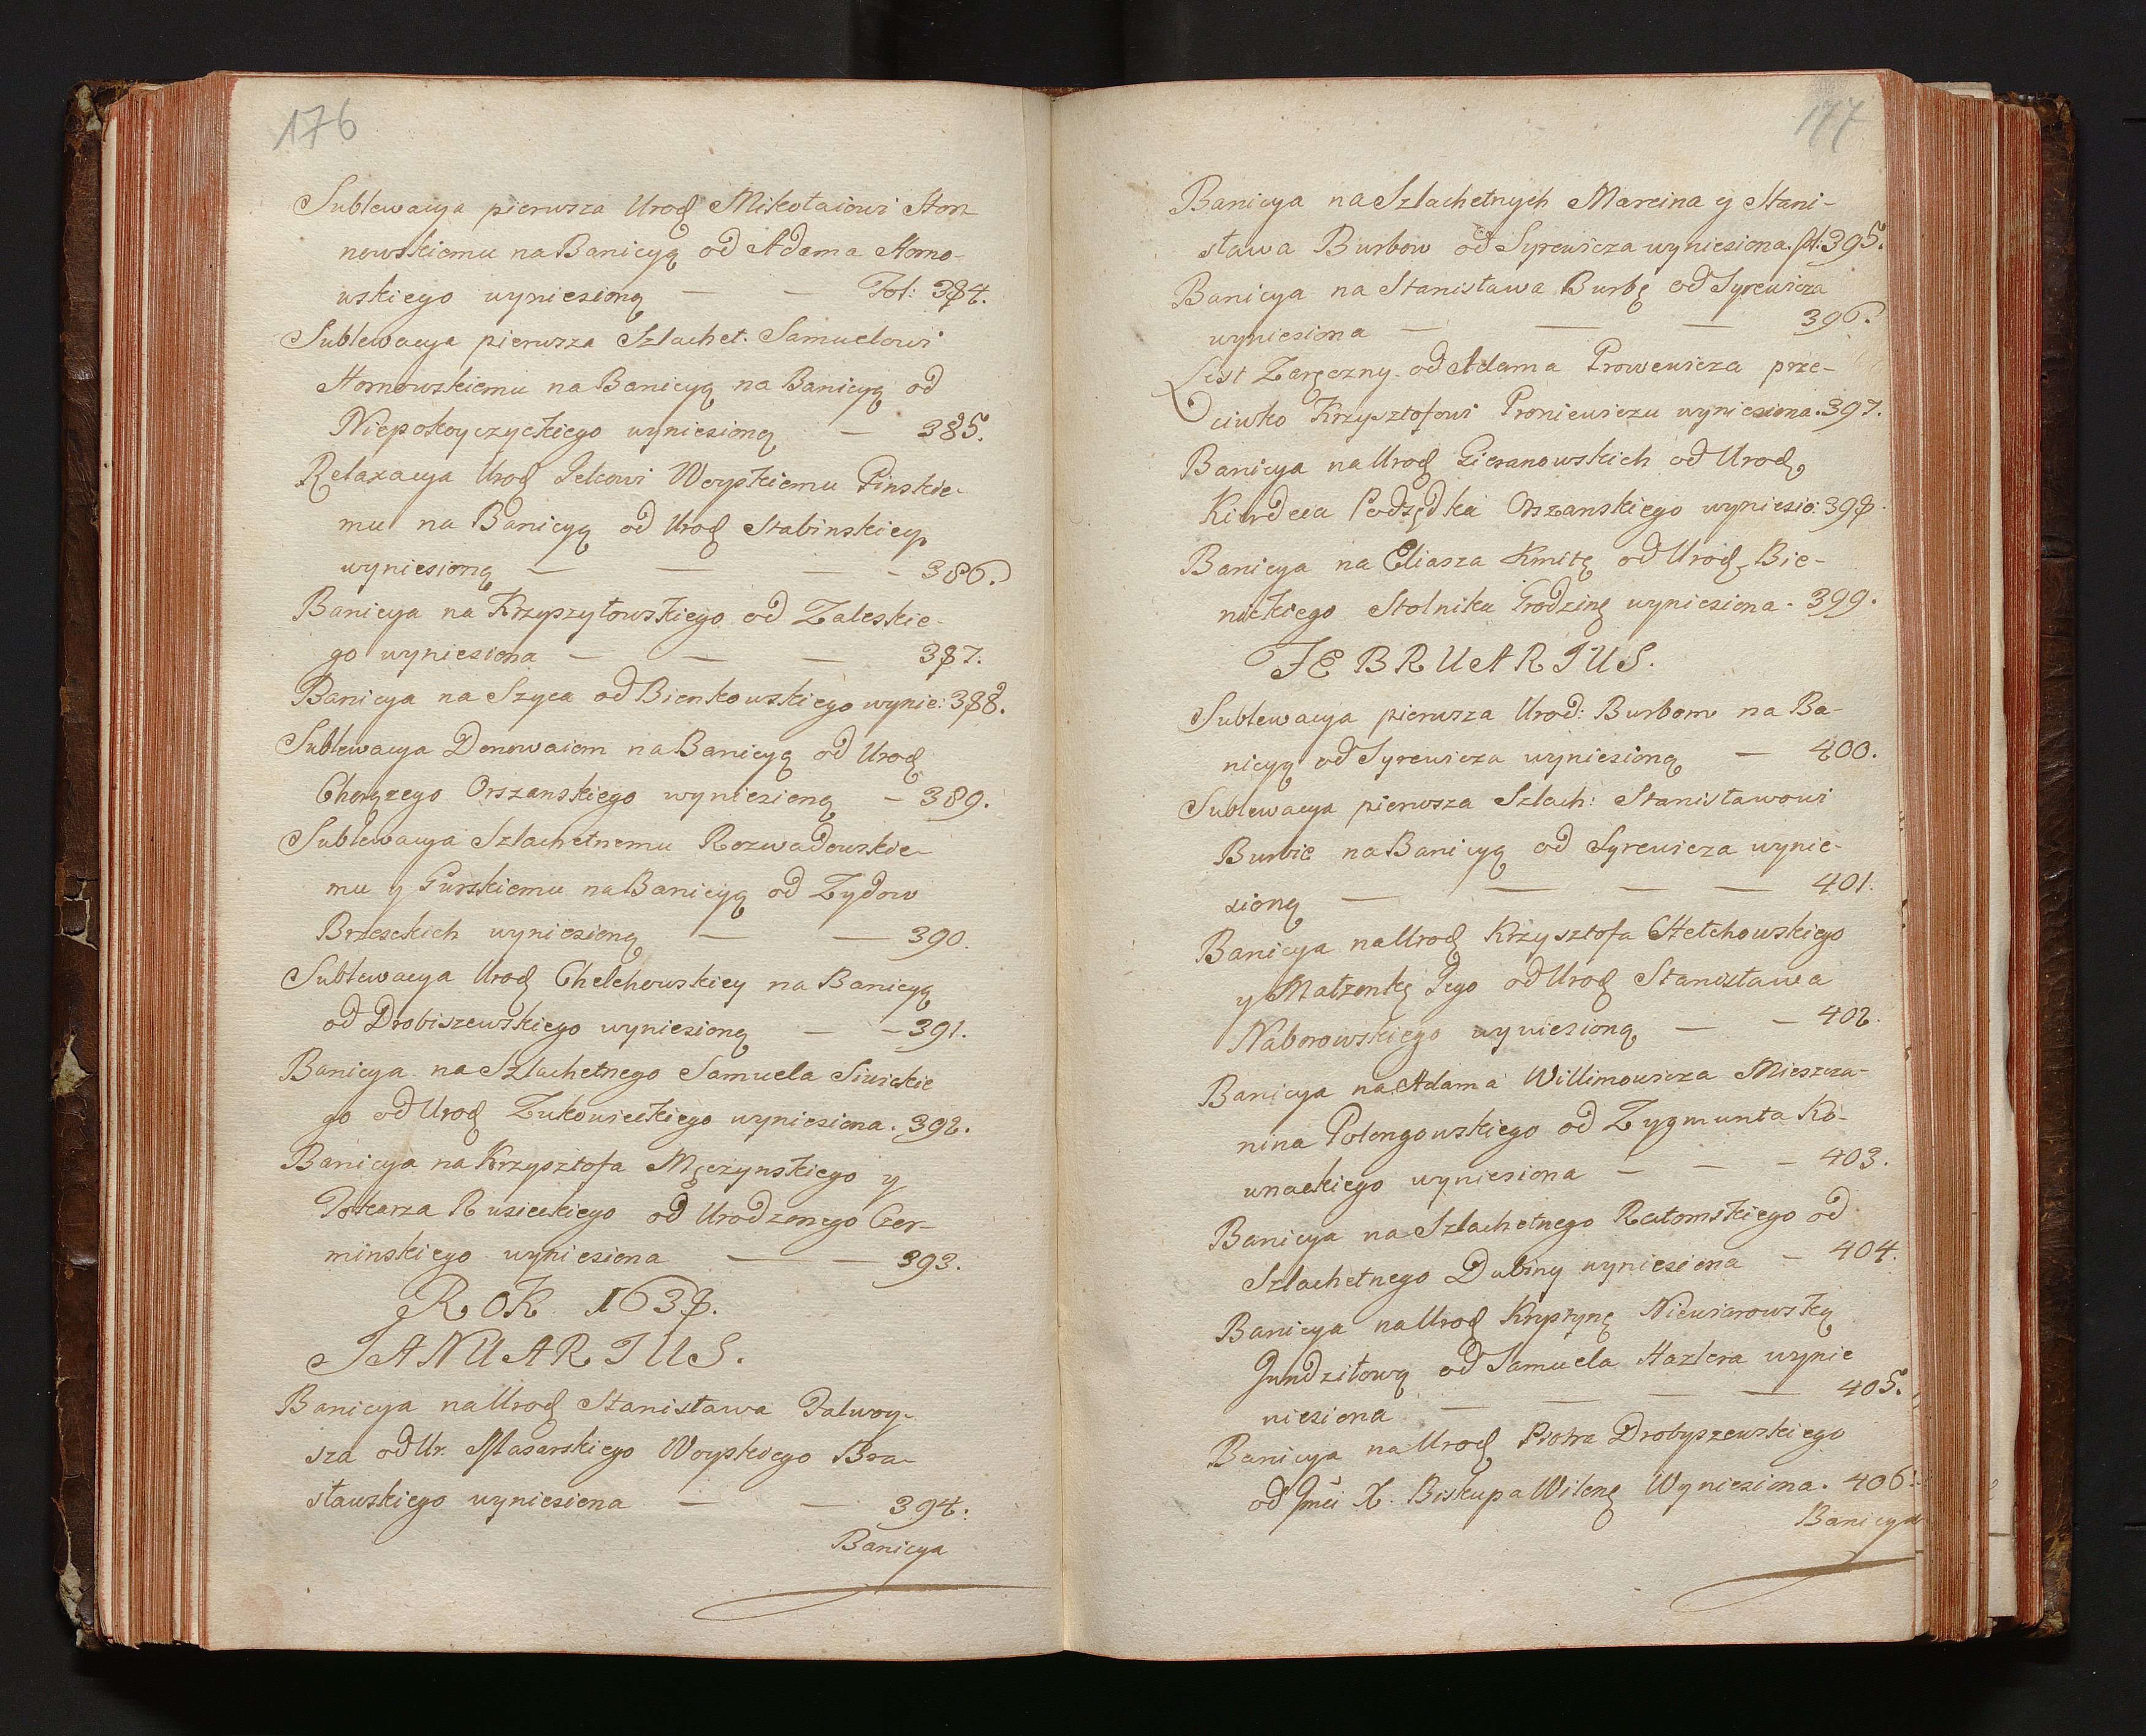 176
Sublewacya pierwsza Urod Mikołaiowi Hor-
nowskiemu na Banicyą od Adama Horno-
wskiego wyniesioną — — Fol: 384.
Sublewacya pierwsza Szlachet. Samuelowi
Hornowskiemu na Banicyą na Banicyą od
Niepokoyczyckiego wyniesioną — 385.
Relaxacya Urod Jelcowi Woyskiemu Pinskie-
mu na Banicyą od Urod Stabinskiego
wyniesioną — — — 386.
Banicya na Krzyszyłowskiego od Zaleskie-
go wyniesiona — — — 387.
Banicya na Szyca od Bienkowskiego wynie: 388.
Sublewacya Donowaiom na Banicyą od Urod
Chorązego Orszanskiego wyniesioną — 389.
Sublewacya Szlachetnemu Rozwadowskie-
mu y Gurskiemu na Banicyą od Zydow
Brzesckich wyniesioną — — 390.
Sublewacya Urod Chelchowskiey na Banicyą
od Drobiszewskiego wyniesioną — — 391.
Banicya na Szlachetnego Samuela Siwickie
go od Urod Zukowieckiego wyniesiona. 392.
Banicya na Krzysztofa Męczynskiego y
Tokarza Rusieckiego od Urodzonego Czer-
minskiego wyniesiona — — 393.
ROK 1638.
JANUARIUS.
Banicya na Urod Stanisława Talwoy-
sza od Ur. Masarskiego Woyskiego Bra-
sławskiego wyniesiona — — 394.
Banicya
177
Banicya na Szlachetnych Marcina y Stani-
sława Burbow od Syrewicza wyniesiona. fl: 395.
Banicya na Stanisława Burbę od Syrewicza
wyniesiona — — — 396.
List Zaręczny od Adama Prowewicza prze-
ciwko Krzysztofowi Proniewiczu wyniesiona. 397.
Banicya na Urod Gieranowskich od Urod
Kierdeia Podsędka Orszanskiego wyniesio: 398.
Banicya na Eliasza Kmitę od Urod. Bie-
nickiego Stolnika Grodzinę wyniesiona. 399.
FEBRUARIUS.
Sublewacya pierwsza Urod: Burbom na Ba-
nicyą od Syrewicza wyniesioną — 400.
Sublewacya pierwsza Szlach: Stanisławowi
Burbie na Banicyą od Syrewicza wynie-
sioną — — — — 401.
Banicya na Urod Krzysztofa Chełchowskiego
y Małzonkę Jego od Urod Stanisława
Naborowskiego wyniesioną — — 402.
Banicya na Adama Willimowicza Mieszcza-
nina Polongowskiego od Zygmunta Ko-
wnackiego wyniesiona — — — 403.
Banicya na Szlachetnego Ratomskiego od
Szlachetnego Dubiny wyniesiona — 404.
Banicya na Urod Krystynę Niewiarowską
Gundziłową od Samuela Hazlera wynie
niesiona — — — — 405.
Banicya na Urod Piotra Drobyszewskiego
od Jmci X. Biskupa Wilenę Wyniesiona. 406.
Banicya